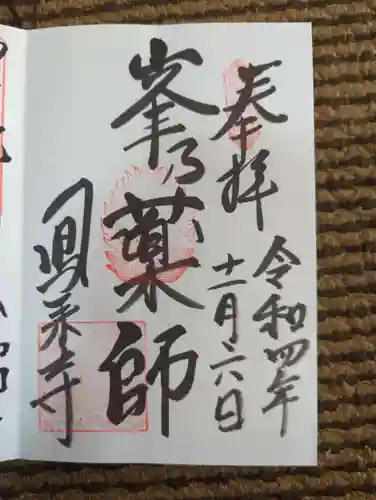 奉拝
令和四年
十一月六日
峯乃薬師
鳳来寺